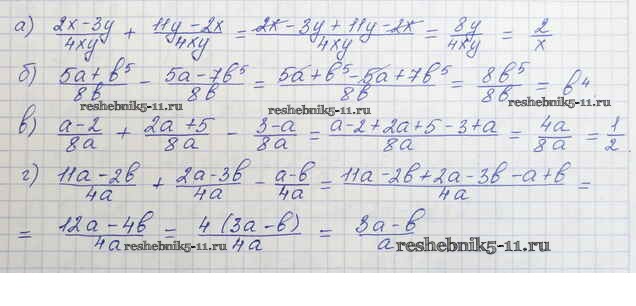 а) (2x-3y)/(4xy) + (11y-2x)/(4xy) = (2x-3y+11y-2x)/(4xy) = (8y)/(4xy) = 2/x
б) (5a+b⁵)/(8b) - (5a-7b⁵)/(8b) = (5a+b⁵-5a+7b⁵)/(8b) = (8b⁵)/(8b) = b⁴.
reshebnik5-11.ru reshebnik5-11.ru reshebnik5-11.ru
в) (a-2)/(8a) + (2a+5)/(8a) - (3-a)/(8a) = (a-2+2a+5-3+a)/(8a) = (4a)/(8a) = 1/2.
г) (11a-2b)/(4a) + (2a-3b)/(4a) - (a-b)/(4a) = (11a-2b+2a-3b-a+b)/(4a) =
= (12a-4b)/(4a) = (4(3a-b))/(4a) = (3a-b)/a
reshebnik5-11.ru reshebnik5-11.ru